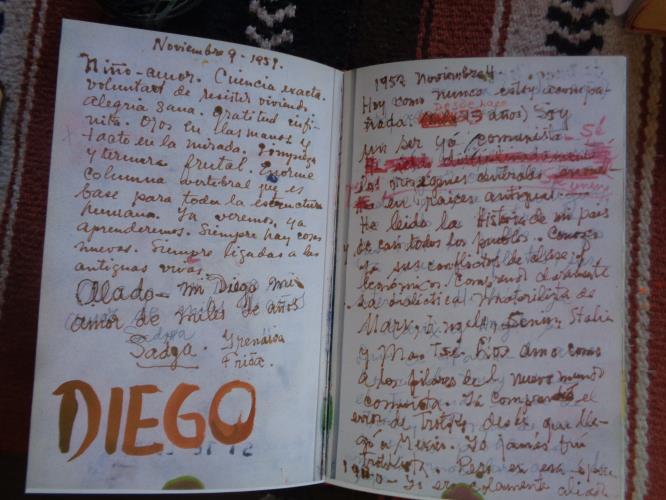 Noviembre 9 - 1951.
Niño-amor. Ciencia exacta.
voluntad de resistir viviendo,
alegria sana. gratitud infi-
nita. Ojos en las manos y
tacto en la mirada. Limpieza
y ternura frutal. Enorme
columna vertebral que es
base para toda la estructura
humana. Ya veremos, ya
aprenderemos. Siempre hay cosas
nuevas. Siempre ligadas a las
antiguas vivas.
Alado - mi Diego mi
amor de miles de años
Sadga. Yrenáica
Frida.
DIEGO
1952 Noviembre 4
Hoy como nunca estoy acompa-
ñada desde hace
años) Soy
un ser yá comunista Sé
los origenes centrales
en raices antiguas.
He leido la Historia de mi pais
y de casi todos los pueblos. Conozco
ya sus conflictos de clase y
económicos. Comprendo claramente
la dialéctica materialista de
Marx, Engels, Lenin, Stalin
y Mao Tsé. Los amo como
a los pilares de el nuevo mundo
comunista. Ya comprendí el
error de Trotsky desde que lle-
gó a Mexico. Yo jamás fuí
trotskista. Pero en esa época
1940 - Yo era solamente aliada